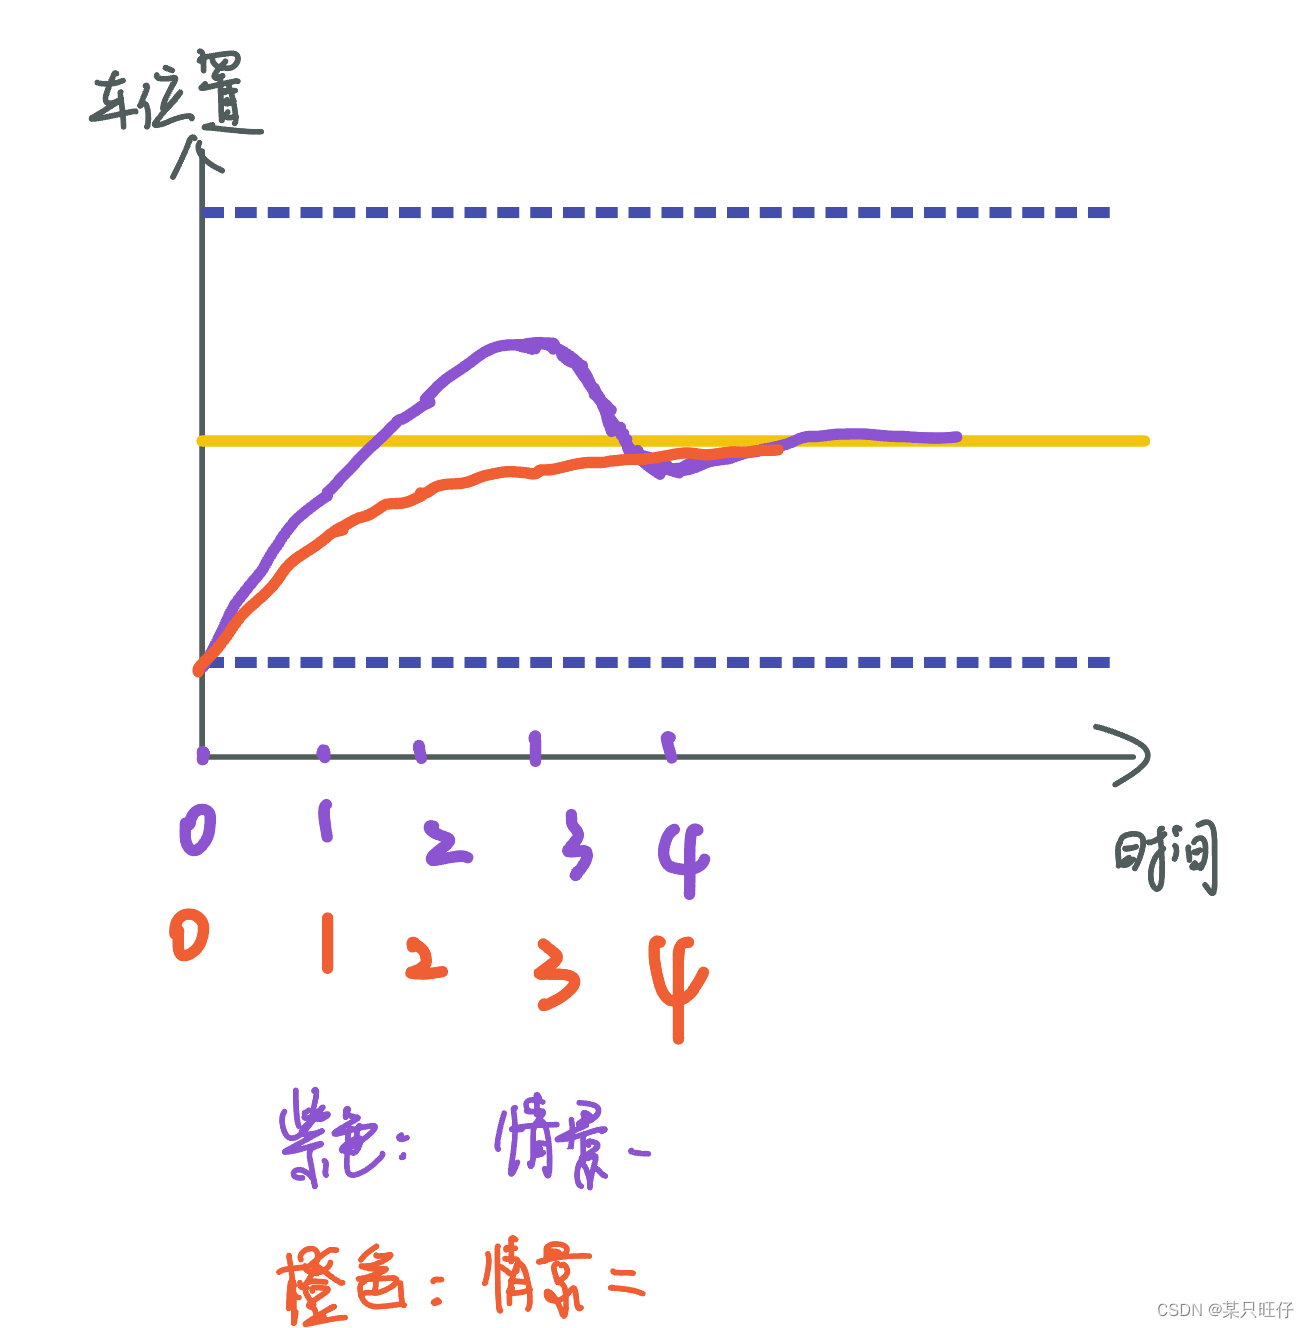 车位置
0 1 2 3 4
时间
0 1 2 3 4
紫色: 情景一
橙色: 情景二
CSDN @某只旺仔